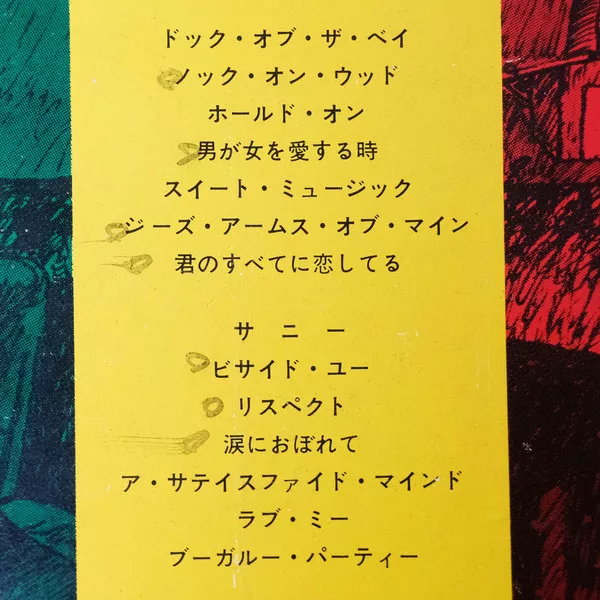 ドック・オブ・ザ・ベイ
ノック・オン・ウッド
ホールド・オン
男が女を愛する時
スイート・ミュージック
ジーズ・アームス・オブ・マイン
君のすべてに恋してる
サニー
ビサイド・ユー
リスペクト
涙におぼれて
ア・サテイスファイド・マインド
ラブ・ミー
ブーガルー・パーティー